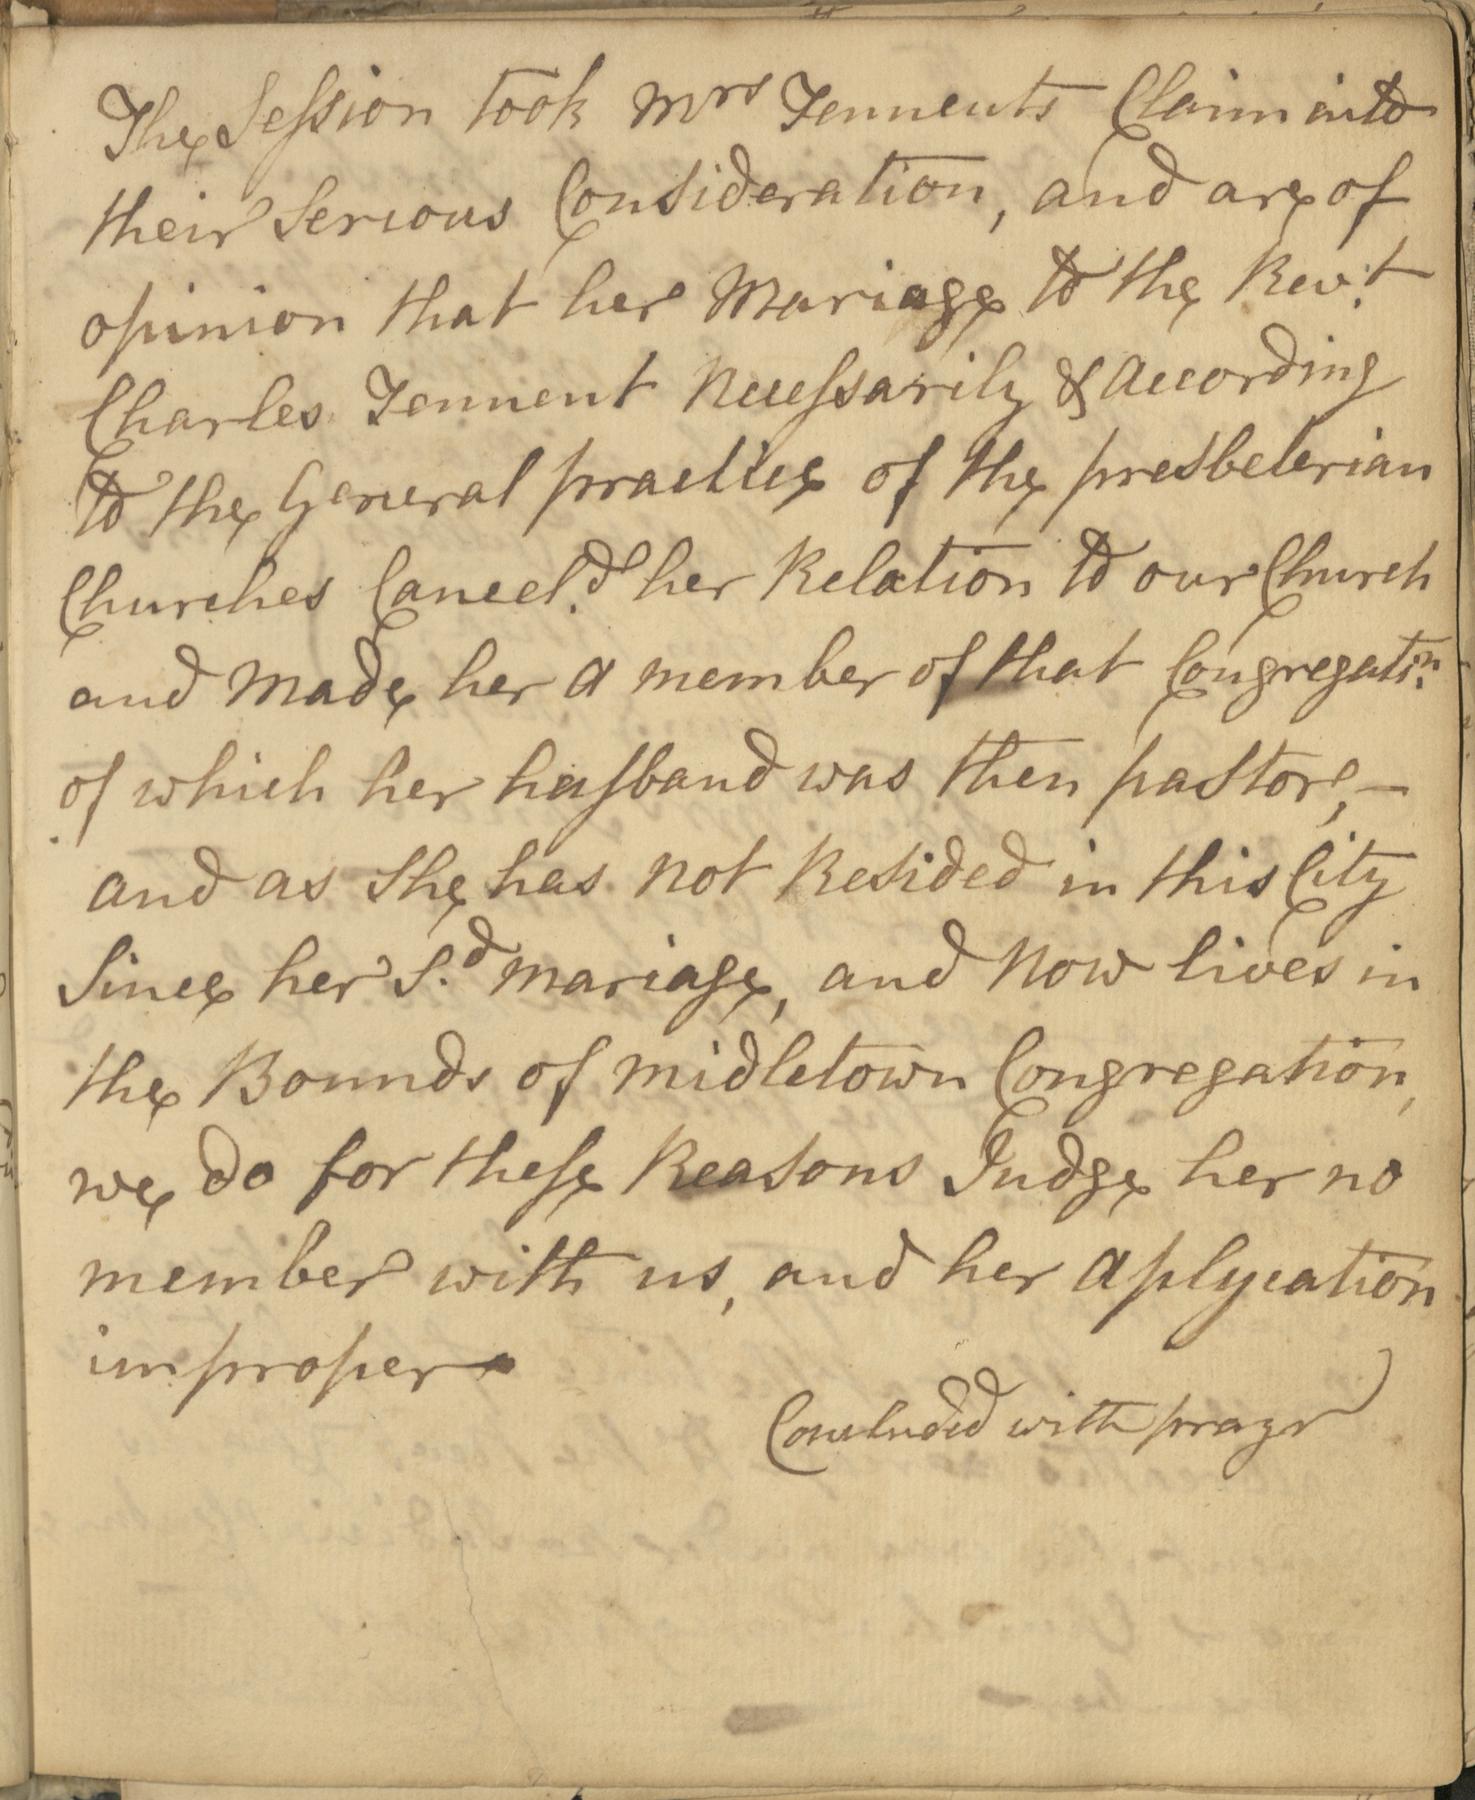 The Session took Mrs Tennents Claim into
their Serious Consideration, and are of
opinion that her Mariage to the Rev.t
Charles Tennent Necessarily & According
to the General practice of the presbeterian
Churches Cancel.d her Relation to our Church
and Made her a member of that Congregati.n
of which her husband was then pastor, -
and as She has not Resided in this City
Since her S.d mariage, and Now lives in
the Bounds of midletown Congregation,
we do for these Reasons Judge her no
member with us, and her Aplycation
improper
Concluded with prayr